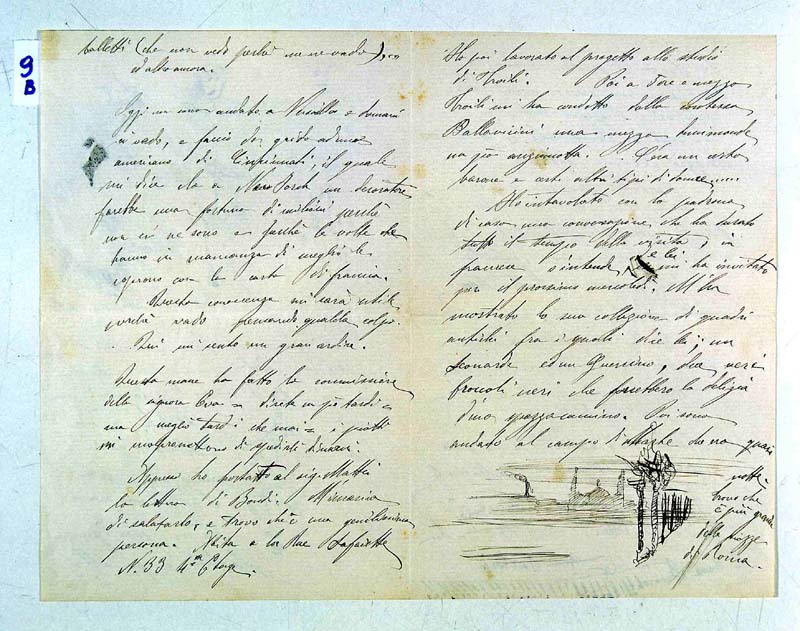 9
B
balletti (che non vedo perchè non ne vado)...
ed altra ancora.
Oggi non sono andato a Versailles e domani
ci vado, e faccio da guida ad un
americano di Cincinnati il quale
mi dice che a Nuova York un decoratore
farebbe una fortuna di milioni perchè
non ce ne sono e perchè le volte che
hanno in mancanza di meglio le
coprono con le carte di francia.
Questa conoscenza mi sarà utile
perchè vado pensando qualche colpo.
Qui mi sento un grand'ardire.
Questa mane ho fatto le commissioni
della signora Eva = direte un pò tardi =
ma meglio tardi che mai = i piatti
mi promettono di spedirli dimani.
Appresso ho portato al sig. Mattei
la lettera di Biondi. M'incarica
di salutarlo, e trovo ch'è una gentilissima
persona. Abita a la Rue Lafaiette
N. 33 4me Etage
Ho poi lavorato al progetto allo studio
di Troili. Poi a tre e mezzo
Troili mi ha condotto dalla contessa
Pallavicini una mezza
un pò . C'era un certo
barone e certi altri tipi di donne.....
Ho intavolato con la padrona
di casa una conversazione che ha durato
tutto il tempo della visita, in
francese s'intende, e lei mi ha invitato
per il prossimo mercoledì. M'ha
mostrato la sua collezione di quadri
antichi fra i quali dice lei, un
Leonardo ed un Guercino, due neri
neri che farebbero la delizia
d'uno spazzacamino. Poi sono
andato al campo di che era quasi
notte.
trovo che
è più grande
della piazza
di Roma.